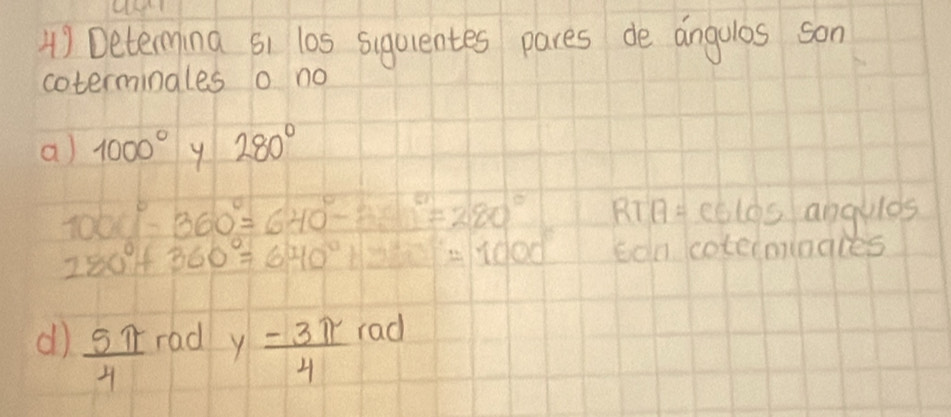 4) Determina si los siguientes pares de ángulos son
coterminales o no
a) 1000° y 280°
1000° - 360° = 640° - 360° = 280° RTA = estos angulos
280° + 360° = 640° + 360° = 1000° son coterminales
d) 5π/4 rad y -3π/4 rad